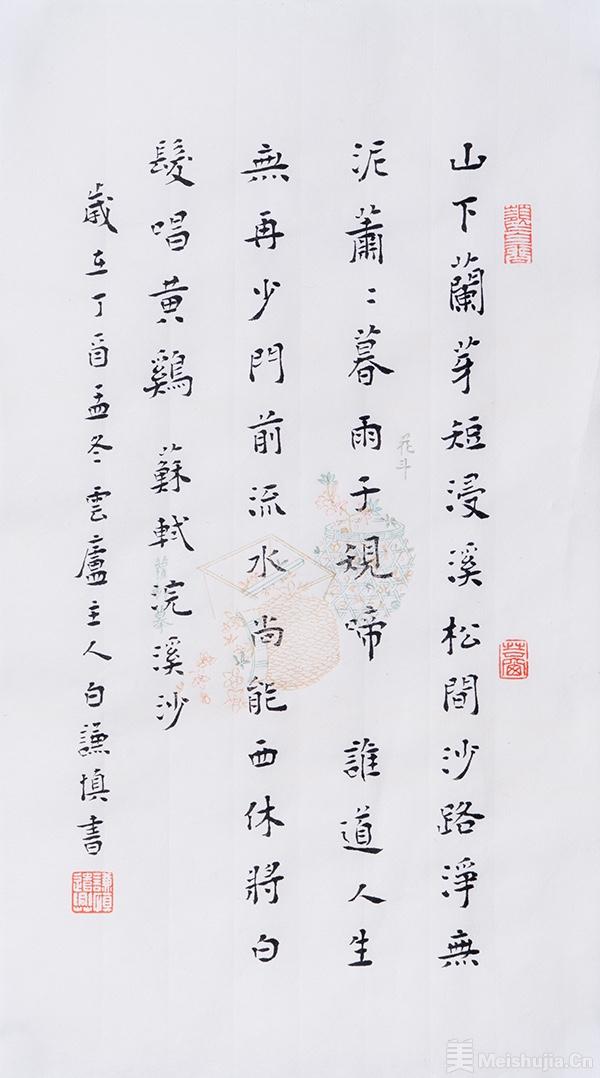 山下蘭芽短浸溪松間沙路淨無
泥蕭〻暮雨子規啼 誰道人生
無再少門前流水尚能西休將白
髮唱黃鷄 蘇軾浣溪沙
歲在丁酉孟冬雲廬主人白謙慎書
花斗
美 Meishujia.Cn